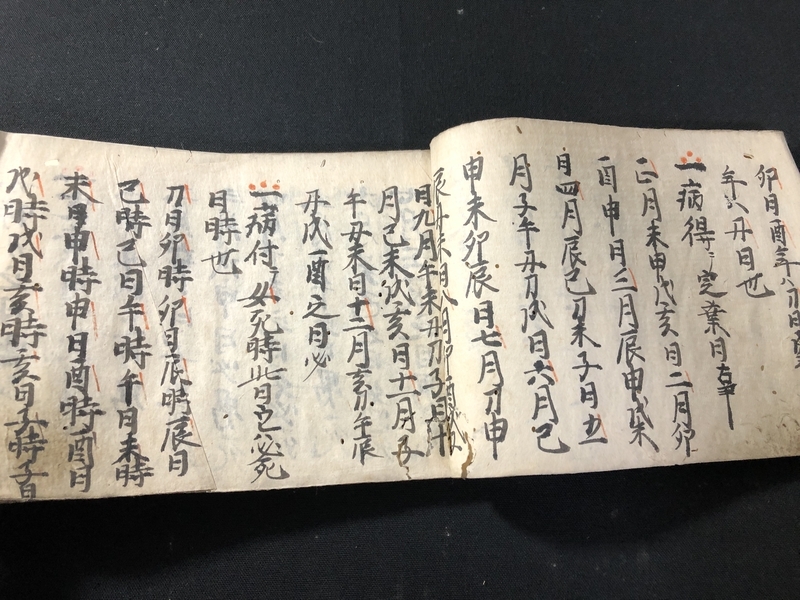 卯日酉年八刀日
年八丑日也
一病得ニ定業日事
正月未申戌亥日二月卯
酉申日三月辰申戌未
日四月辰巳刀未子日五
月子午丑刀戌日六月己
申未卯辰日七月刀申
日九月午未丑刀子日十
月己未戌亥日十一月丑
午丑未日十二月亥刀午辰
丑戌酉之日必
一病付テ女死時此日ニ必死
日時也
刀日卯時卯日辰時辰日
巳時巳日午時午日未時
未日申時申日酉時酉日
戌時戌日亥時亥日子時子日